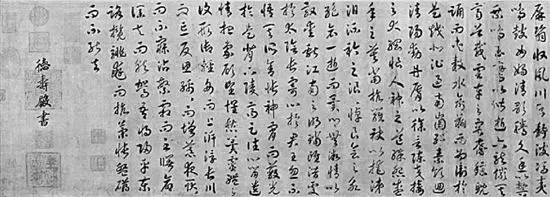 屏翳收風川后靜波馮夷
鳴鼓女媧清歌騰文魚以警
乘鳴玉鸞以偕逝六龍儼
其齊首載雲車之容裔鯨鯢
踊而夾轂水禽翔而為衛於
是越北沚過南岡紆素領迴
清陽動朱脣以徐言陳交接
之大綱恨人神之道殊怨盛
年之莫當抗羅袂以掩涕
淚流襟之浪浪悼良會之永
絕哀一逝而異鄉無微情以
效愛獻江南之明璫雖潛處
於太陰長寄心於君王忽不
悟其所舍悵神宵而蔽光
於是背下陵高足往心留遺
情想像顧望懷愁冀靈體之
復形御輕舟而上泝浮長川
而忘反思綿綿而增慕夜耿耿
而不寐沾繁霜而至曙命
僕夫而就駕吾將歸乎東
路攬騑轡而抗策悵盤桓
而不能去
德壽殿書